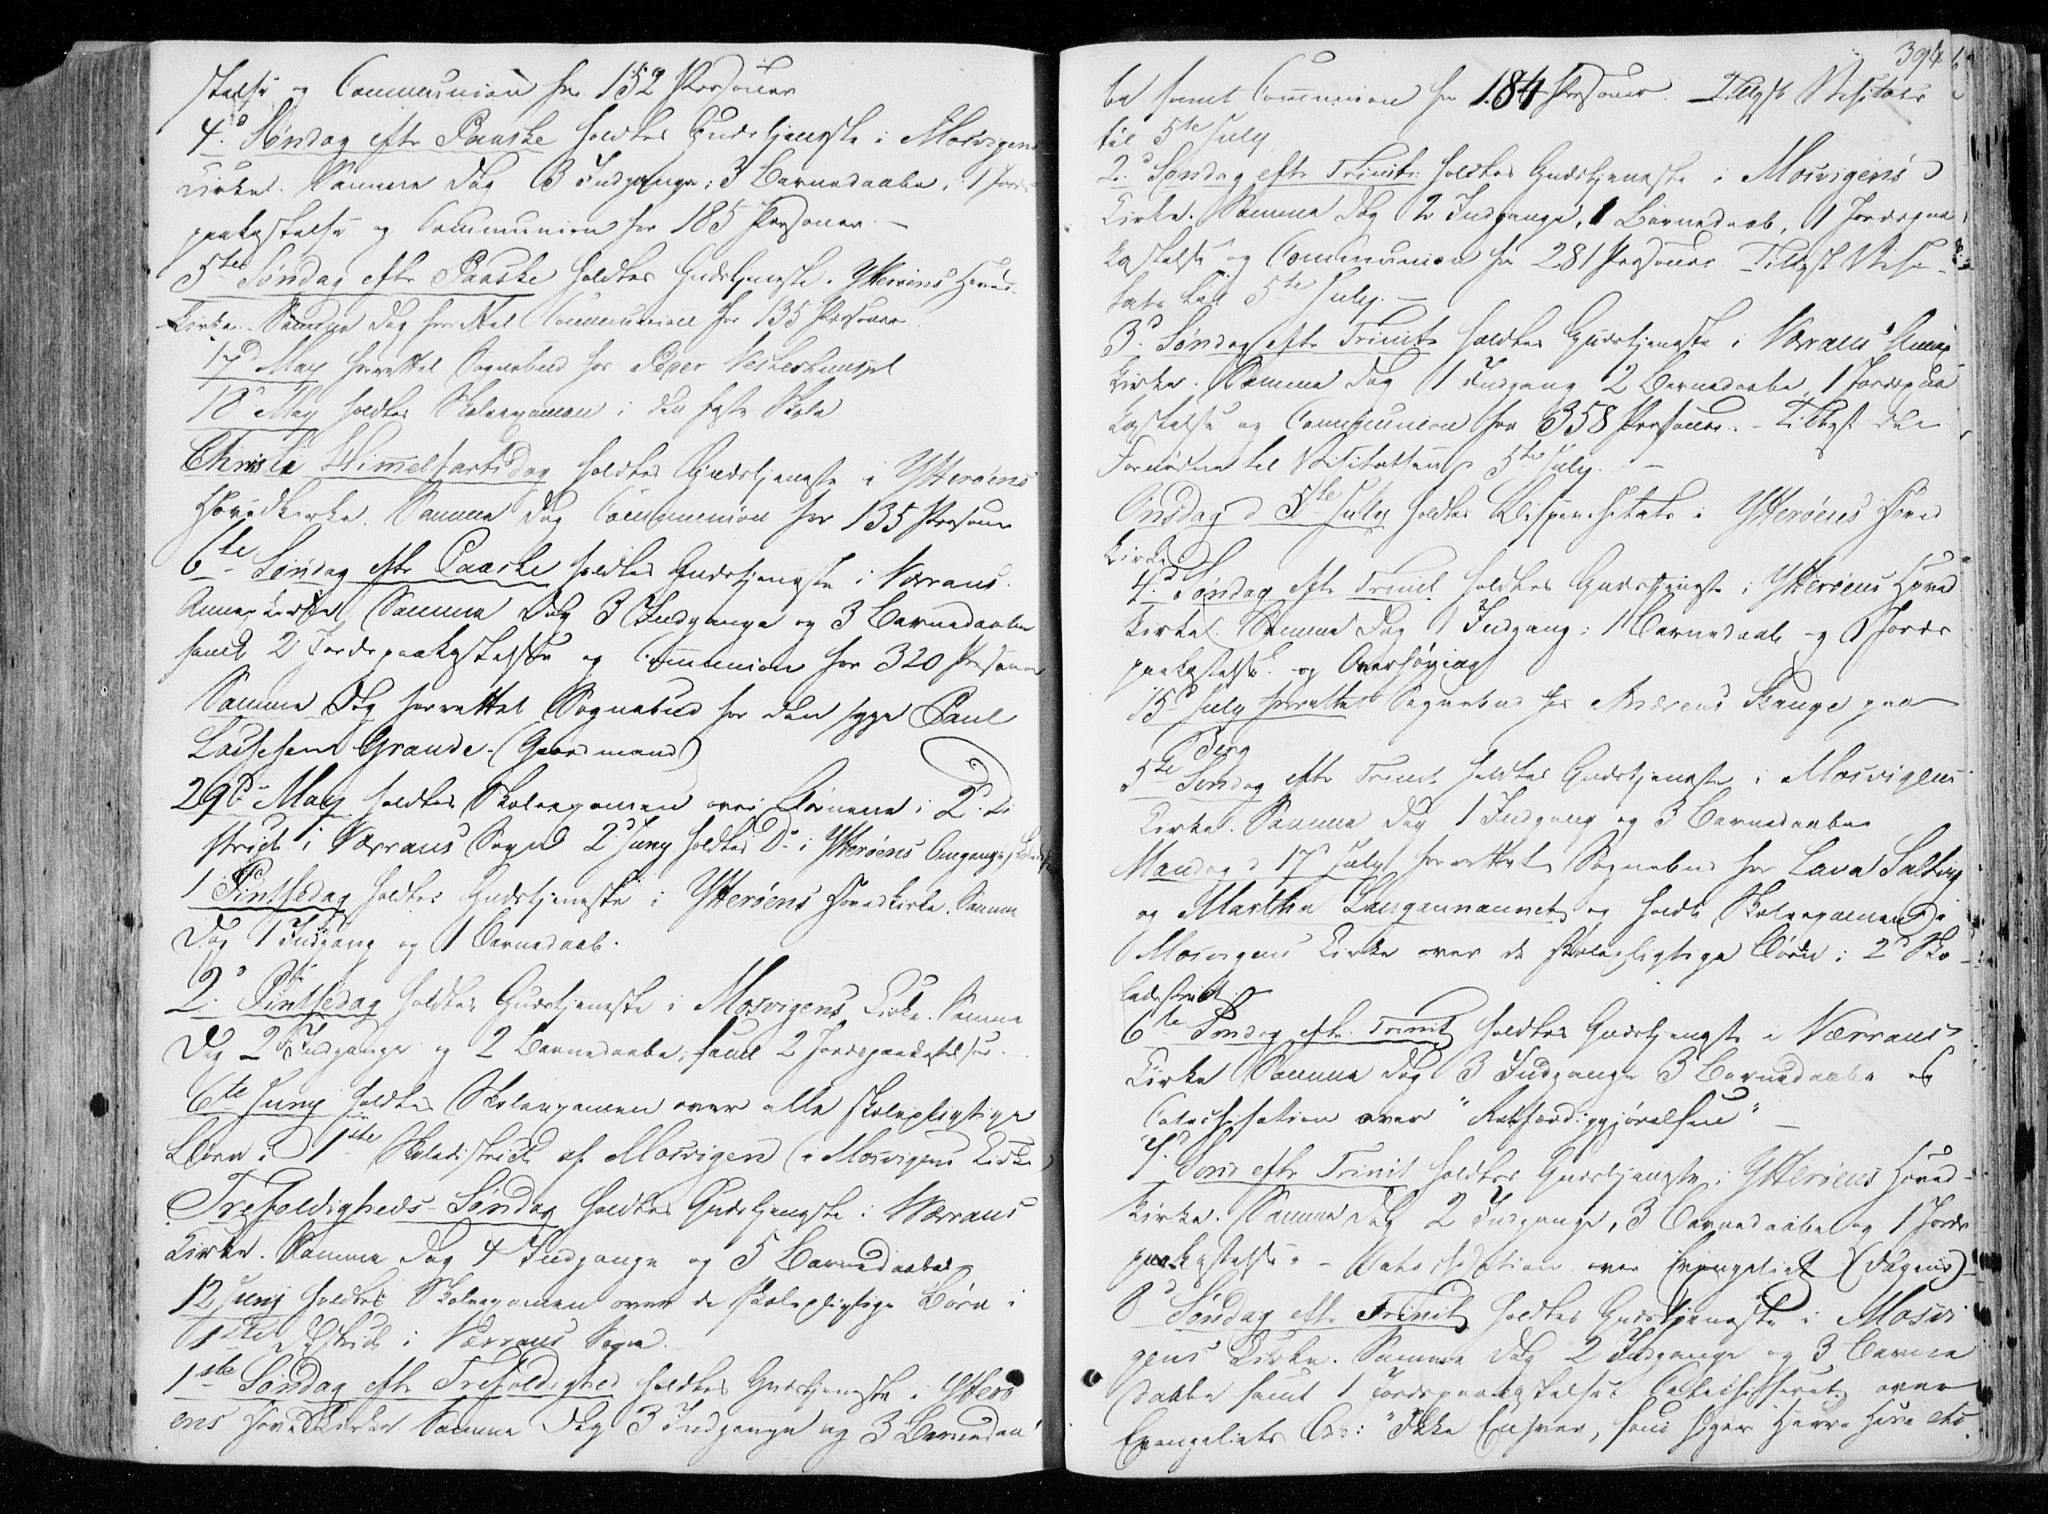 stelse og Communion for 152 Personer
4d. Søndag efter Paaske holdtes Gudstjeneste i Mosvigens
Kirke. Samme Dag 3 Indgange, 3 Barnedaabe, 1 Jords-
paakastelse og Communion for 185 Personer. —
5te Søndag efter Paaske holdtes Gudstjeneste i Ytterøens Hoved-
kirke. Samme Dag forrettet Communion for 135 Personer.
17d May forrettet Sognebud for Peder
18d May holdtes Skoleexamen i den faste Skole
Christi Himmelfartsdag holdtes Gudstjeneste i Ytterøens
Hovedkirke. Samme Dag Communion for 135 Personer
6te Søndag efter Paaske holdtes Gudstjeneste i Værrans
Annexkirke, Samme Dag 3 Indgange og 3 Barnedaabe
samt 2 Jordspaakastelse og Communion for 320 Personer
Samme Dag forrettet Sognebud for den syge Paul
Grande. (Gaardmand)
29d May holdtes Skoleexamen over Børnene i 2d Di-
strict i Værrans Sogn 2d Juny holdtes Do i Ytterøens Omgangs
1 Pintsedag holdtes Gudstjeneste i Ytterøens Hovedkirke. Samme
Dag 1 Indgang og 1 Barnedaab.
2d. Pintsedag holdtes Gudstjeneste i Mosvigens Kirke. Samme
Dag 2 Indgange og 2 Barnedaabe, samt 2 Jordspaakastelser.
6te Juny holdtes Skoleexamen over alle skolepligtige
Børn i 1ste Skoledistrict af Mosvigen (i Mosvigens Kirke)
Trefoldigheds-Søndag holdtes Gudstjeneste i Værrans
Kirke. Samme Dag 4 Indgange og 5 Barnedaabe
12 Juny holdtes Skoleexamen over de skolepligtige Børn i
1ste District i Værrans Sogn.
1ste Søndag efter Trefoldighed holdtes Gudstjeneste i Ytterø-
ens Hovedkirke Samme Dag 3 Indgange og 3 Barnedaa-
394
be samt Communion for 184 Personer. Tillyst Visitats
til 5te July
2d. Søndag efter Trinit: holdtes Gudstjeneste i Mosvigens
Kirke. Samme Dag 2 Indgange, 1 Barnedaab, 1 Jordspaa-
kastelse og Communion for 281 Personer Tillyst Visi-
tats til 5te July. —
3d. Søndag efter Trinit: holdtes Gudstjeneste i Værrans Annex-
kirke. Samme Dag 1 Indgang 2 Barnedaabe, 1 Jordspaa-
kastelse og Communion for 358 Personer. - Tillyst de
Fornødne til Visitatsen d. 5te July. —
Onsdag d 5te July holdtes Bispevisitats i Ytterøens Hoved-
kirke
4d. Søndag efter Trinit holdtes Gudstjeneste i Ytterøens Hoved-
kirke. Samme Dag 1 Indgang, 1 Barnedaab og Jords-
paakastelse og Overhøring
15d July forrettet Sognebud for Stange paa
Berg
5te Søndag efter Trinit. holdtes Gudstjeneste i Mosvigens
Kirke. Samme Dag 1 Indgang og 3 Barnedaabe
Mandag d 17d July forrettet Sognebud for Lava Saltvig
og Martha Langannannet og holdt Skoleexamen i
Mosvigens Kirke over de skolepligtige Børn i 2d Sko-
ledistrict.
6te Søndag efter Trinit holdtes Gudstjeneste i Værrans
Kirke Samme Dag 3 Indgange 3 Barnedaabe og
Catechisation over "Retfærdiggjørelsen" —
7d. Sønd efter Trinit holdtes Gudstjeneste i Ytterøens Hoved-
kirke. Samme Dag 2 Indgange, 3 Barnedaabe og 1 Jords-
paakastelse. - Catechisation over Evangeliet (Dagens)
8d Søndag efter Trinit holdtes Gudstjeneste i Mosvi-
gens Kirke. Samme Dag 2 Indgange og 3 Barne-
daabe samt 1 Jordspaakastelse. Catechiseret over
Evangeliets Ord: "Ikke Enhver, som siger Herre Herre etc.